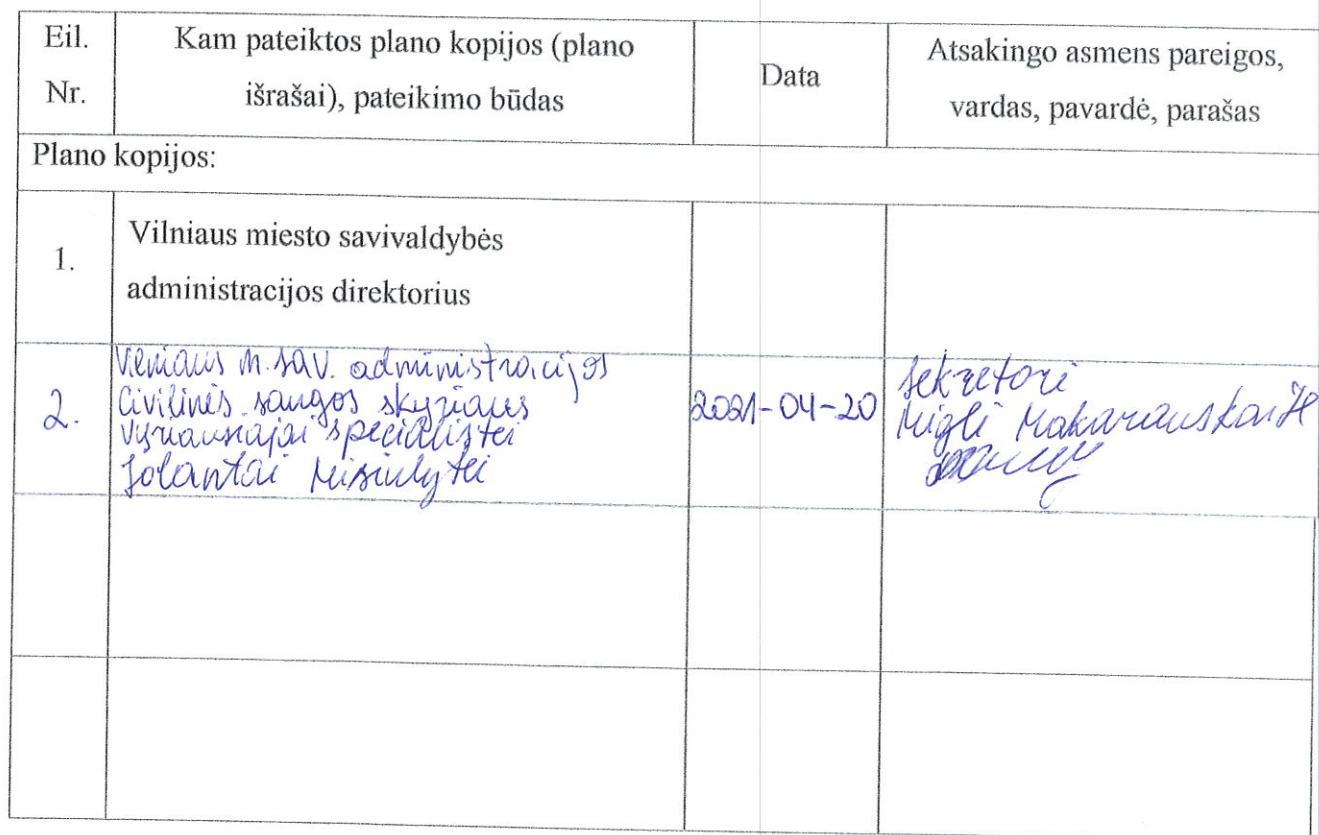 Eil. Nr.
Kam pateiktos plano kopijos (plano
išrašai), pateikimo būdas
Data
Atsakingo asmens pareigos,
vardas, pavardė, parašas
Plano kopijos:
1.
Vilniaus miesto savivaldybės
administracijos direktorius
2.
Vilniaus m. sav. administracijos
Civilinės saugos skyriaus
vyriausiajai specialistei
Jolantai Misiulytei
2021-04-20
Sekretorė
Miglė Makarauskaitė